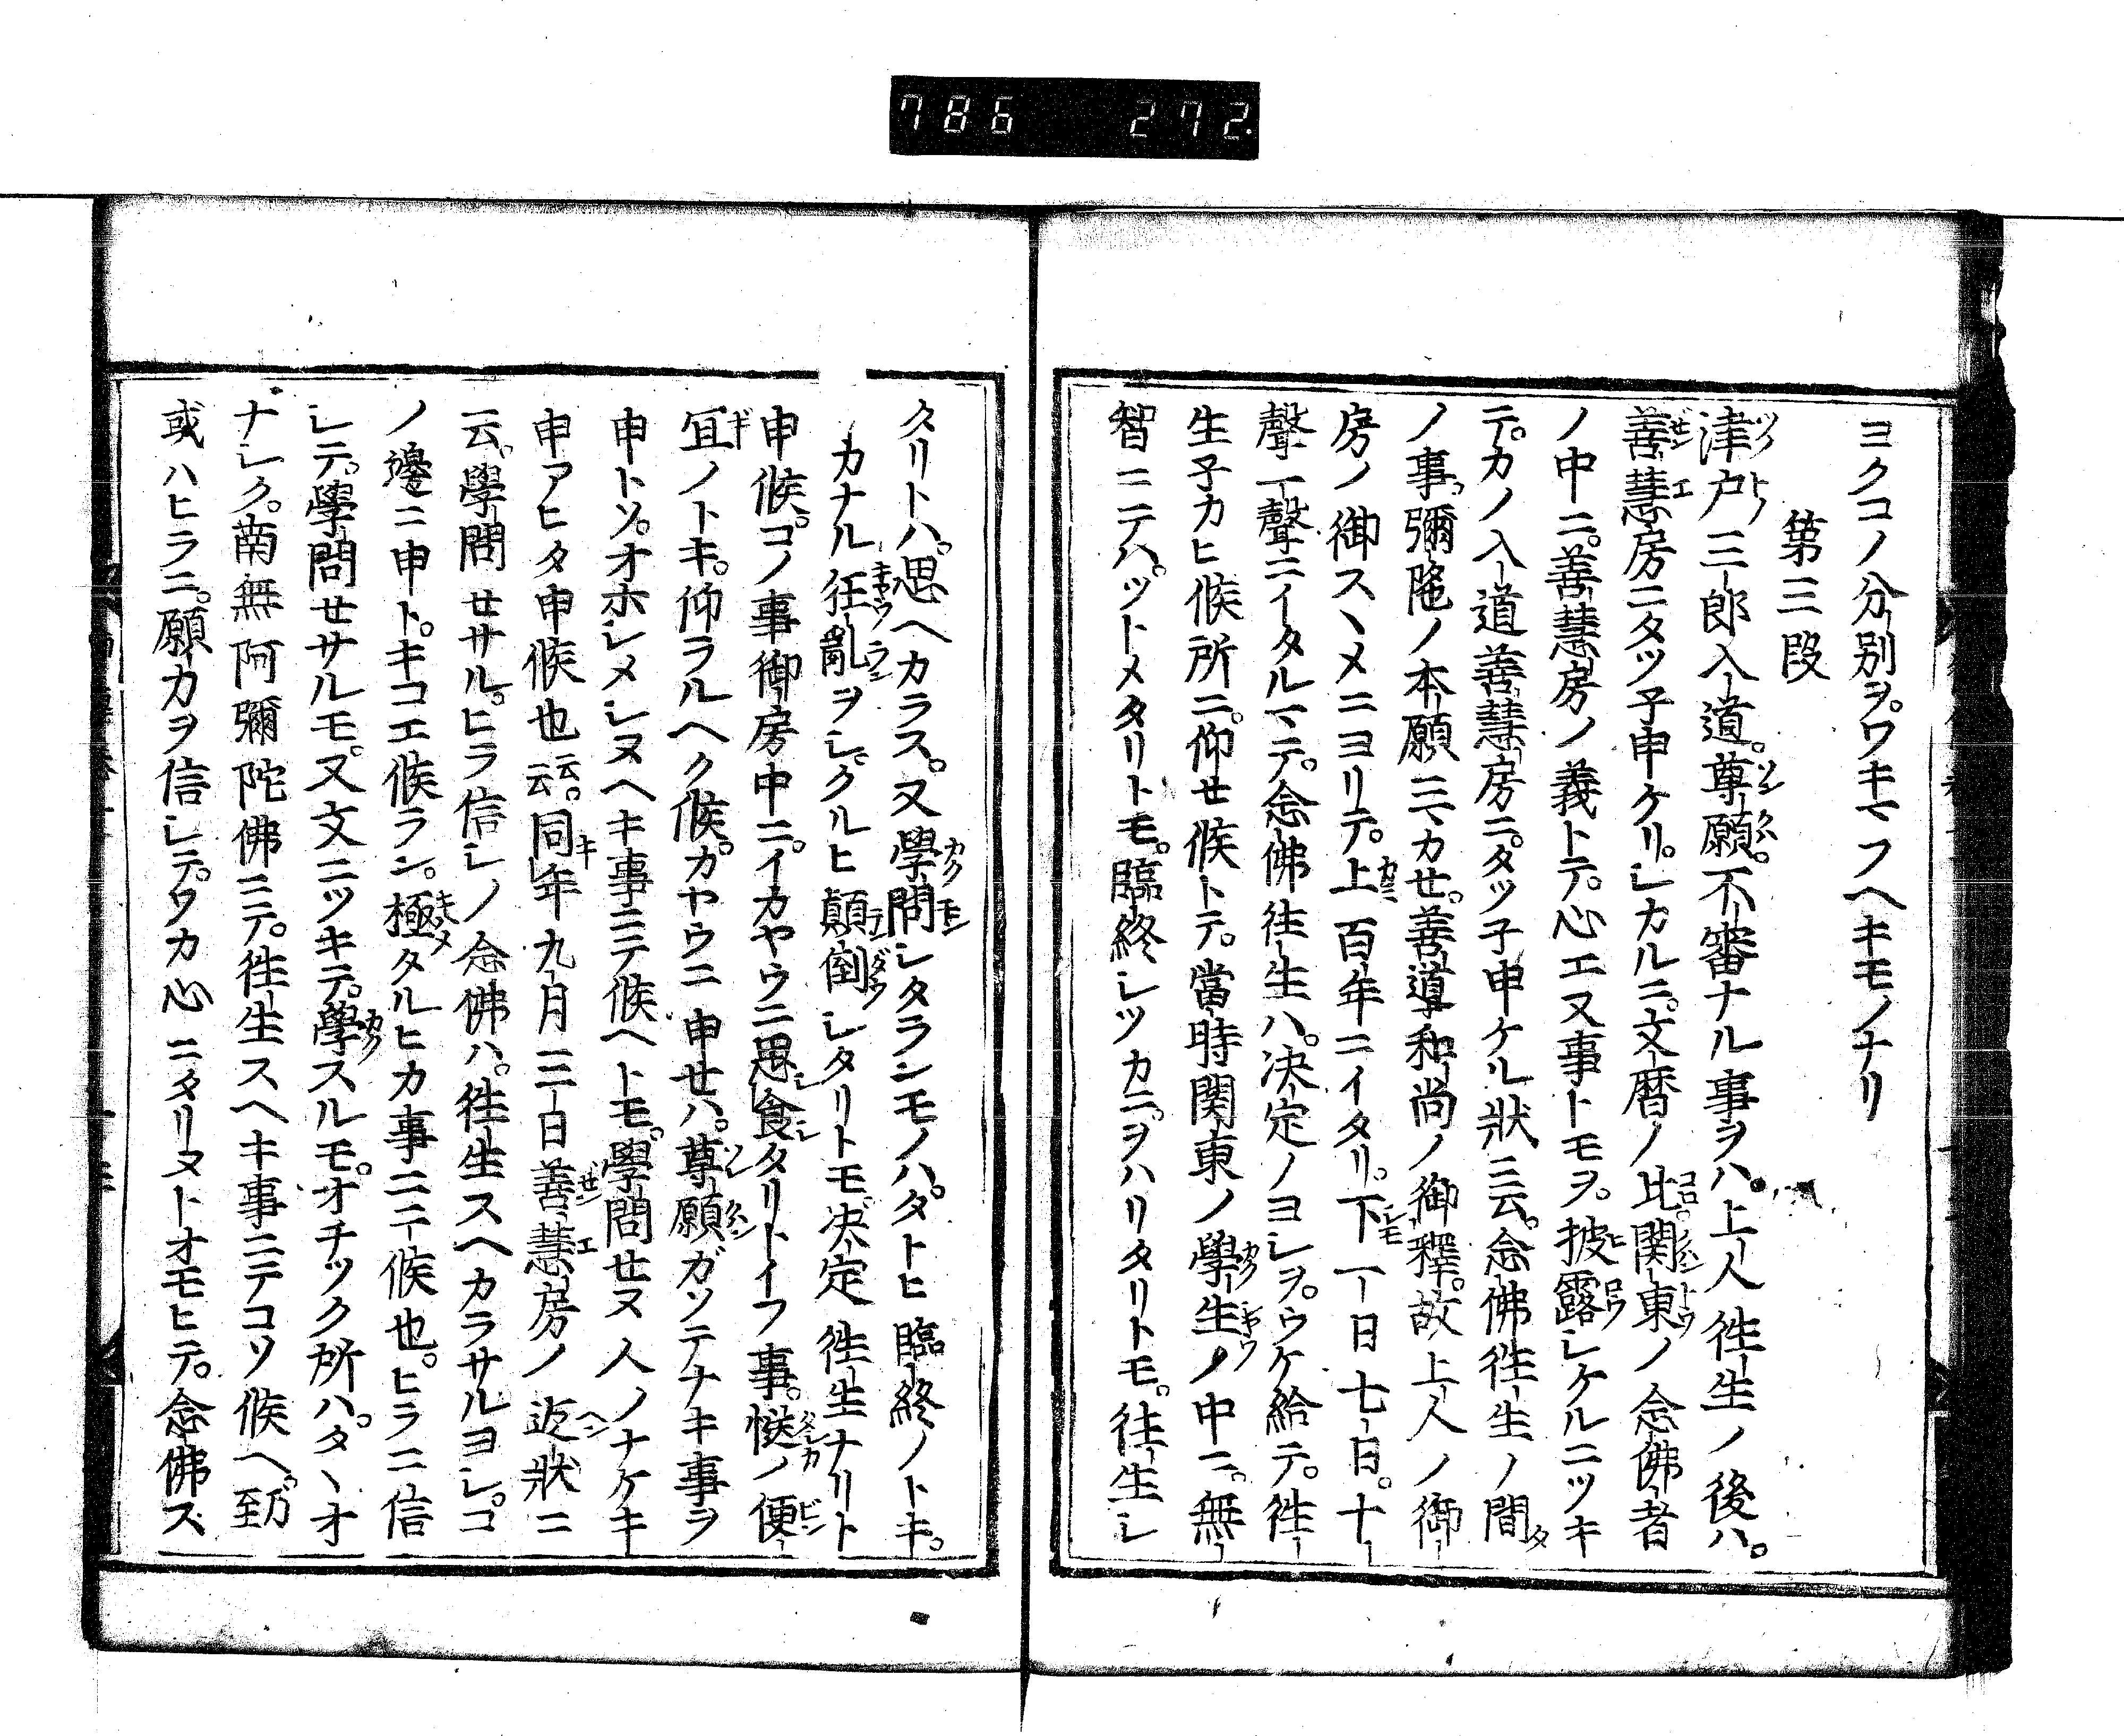 786 272.
ヨクコノ分別ヲ。ワキマフヘキモノナリ
第三段
津戸三郎入道。尊願。不審ナル事ヲハ。上人徃生ノ後ハ。
善慧房ニタツ子申ケリ。シカルニ。文暦ノ比。関東ノ念佛者
ノ中ニ。善慧房ノ義トテ。心エヌ事トモヲ。披露シケルニツキ
テ。カノ入道善慧房ニ。タツ子申ケル狀ニ云。念佛徃生ノ間
ノ事。彌陁ノ本願ニマカせ。善導和尚ノ御釋。故上人ノ御
房ノ御スヽメニヨリテ。上百年ニイタリ。下一日七日。十
聲一聲ニイタルマテ。念佛徃生ハ。决定ノヨシヲ。ウケ給テ。徃
生子カヒ候所ニ。仰せ候トテ。當時関東ノ學生ノ中ニ。無
智ニテハ。ツトメタリトモ。臨終シツカニ。ヲハリタリトモ。徃生シ
タリトハ。思ヘカラス。又學問シタランモノハ。タトヒ臨終ノトキ。
イカナル狂亂ヲシ。クルヒ顛倒シタリトモ。决定徃生ナリト
申候。コノ事御房中ニ。イカヤウニ思食タリトイフ事。慥ノ便
冝ノトキ。仰ラルヘク候。カヤウニ申せハ。尊願ガソテナキ事ヲ
申トソ。オホシメシヌヘキ事ニテ候ヘトモ。學問せヌ人ノナケキ
申アヒタ申候也云云。同年九月三日善慧房ノ返狀ニ
云。學問せサル。ヒラ信シノ念佛ハ。徃生スヘカラサルヨシ。コ
ノ邊ニ申ト。キコエ候ラン。極タルヒカ事ニテ候也。ヒラニ信
シテ。學問せサルモ。又文ニツキテ。學スルモ。オチツク所ハ。タヽオ
ナシク。南無阿彌陀佛ニテ。徃生スヘキ事ニテコソ候ヘ。
或ハヒラニ。願力ヲ信シテ。ワカ心ニタリヌトオモヒテ。念佛ス